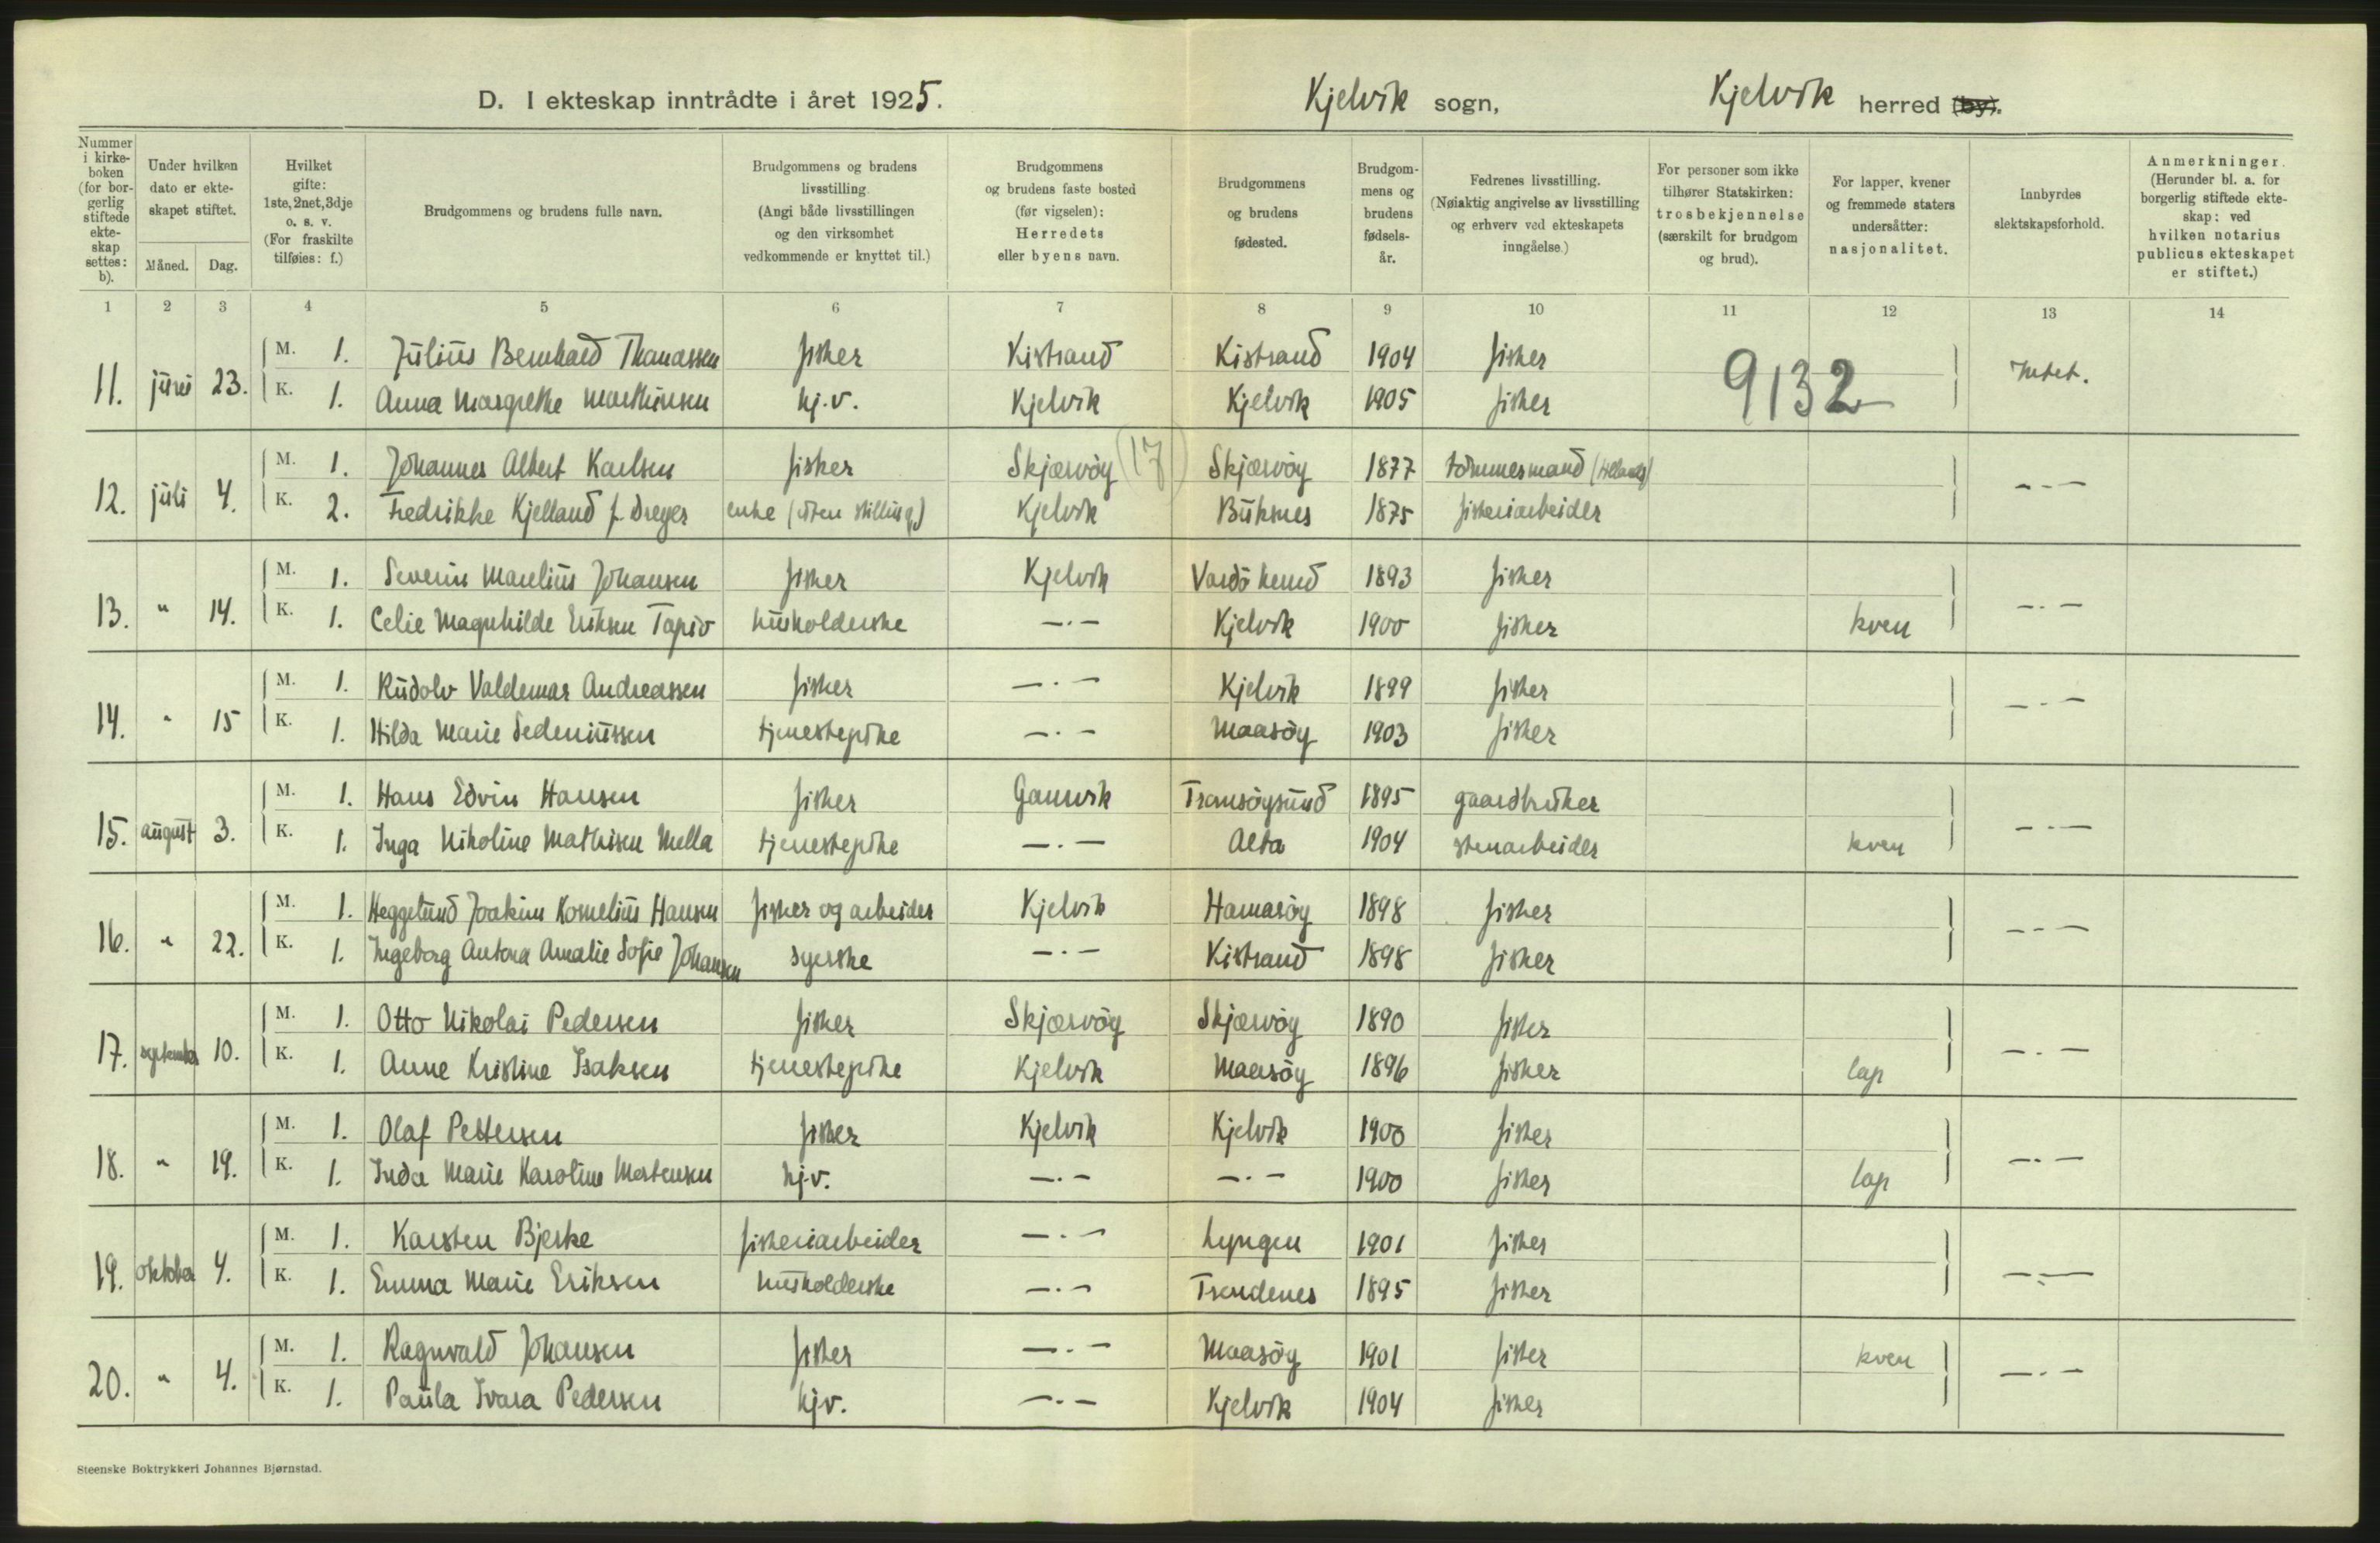 D. I ekteskap inntrådte i året 1925. Kjelvik sogn, Kjelvik herred (by).
Nummer i kirkeboken (for borgerlig stiftede ekteskap settes: b).
Under hvilken dato er ekteskapet stiftet.
Måned. Dag.
Hvilket gifte: 1ste, 2net, 3dje o. s. v. (For fraskilte tilføies: f.)
Brudgommens og brudens fulle navn.
Brudgommens og brudens livsstilling. (Angi både livsstillingen og den virksomhet vedkommende er knyttet til.)
Brudgommens og brudens faste bosted (før vigselen): Herredets eller byens navn.
Brudgommens og brudens fødested.
Brudgommens og brudens fødselsår.
Fedrenes livsstilling. (Nøiaktig angivelse av livsstilling og erhverv ved ekteskapets inngåelse.)
For personer som ikke tilhører Statskirken: trosbekjennelse (særskilt for brudgom og brud).
For lapper, kvener og fremmede staters undersåtter: nasjonalitet.
Innbyrdes slektskapsforhold.
Anmerkninger. (Herunder bl. a. for borgerlig stiftede ekteskap: ved hvilken notarius publicus ekteskapet er stiftet.)
1 2 3 4 5 6 7 8 9 10 11 12 13 14
M. 1. Julius Bernhard Thomassen fisker Kistrand Kistrand 1904 fisker
11. juni 23. 9132 Intet.
K. 1. Anna Margrethe Mathisen hj.v. Kjelvik Kjelvik 1905 fisker
M. 1. Johannes Albert Karlsen fisker Skjærvöy (17) Skjærvöy 1877 tömmermand
12. juli 4. — - —
K. 2. Fredrikke Kjelland f. Dreyer enke (uten stilling) Kjelvik Buksnes 1875 fiskeriarbeider
M. 1. Severin Marelius Johansen fisker Kjelvik Vardö herred 1893 fisker
13. " 14. — . —
K. 1. Celie Magnhilde Eriksen Tapio husholderske — . — Kjelvik 1900 fisker kven
M. 1. Rudolv Valdemar Andreassen fisker — . — Kjelvik 1899 fisker
14. " 15 — . —
K. 1. Hilda Marie Sedeniussen tjenestepike — . — Maasöy 1903 fisker
M. 1. Hans Edvin Hansen fisker Gamvik Tromsöysund 1895 gaardbruker
15. august 3. — . —
K. 1. Inga Nikoline Mathisen Mella tjenestepike — . — Alta 1904 stenarbeider kven
M. 1. Heggelund Joakim Kornelius Hansen fisker og arbeider Kjelvik Hamaröy 1898 fisker
16. " 22. — - —
K. 1. Ingeborg Antona Amalie Sofie Johansen syerske — . — Kistrand 1898 fisker
M. 1. Otto Nikolai Pedersen fisker Skjærvöy Skjærvöy 1890 fisker
17. september 10. — . —
K. 1. Anne Kristine Isaksen tjenestepike Kjelvik Maasöy 1896 fisker lap
M. 1. Olaf Pettersen fisker Kjelvik Kjelvik 1900 fisker
18. " 19. — . —
K. 1. Inda Marie Karoline Mortensen hj.v. — . — — . — 1900 fisker lap
M. 1. Karsten Bjerke fiskeriarbeider — . — Lyngen 1901 fisker
19. oktober 4. — . —
K. 1. Emma Marie Eriksen husholderske — . — Trondenes 1895 fisker
M. 1. Ragnvald Johansen fisker — . — Maasöy 1901 fisker kven
20. " 4. — . —
K. 1. Paula Ivara Pedersen hjv. — . — Kjelvik 1904 fisker
Steenske Boktrykkeri Johannes Bjørnstad.